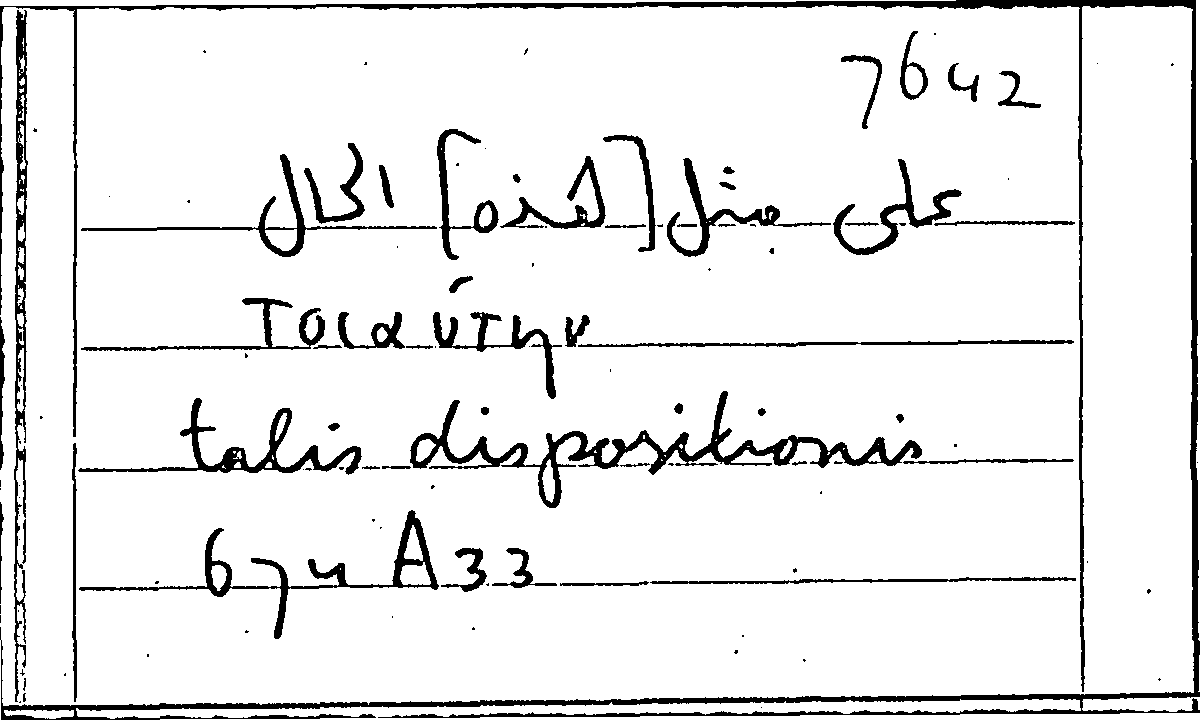 7642
على مثل [هذه] الحال
τοιαύτην
talis dispositionis
674 A 33